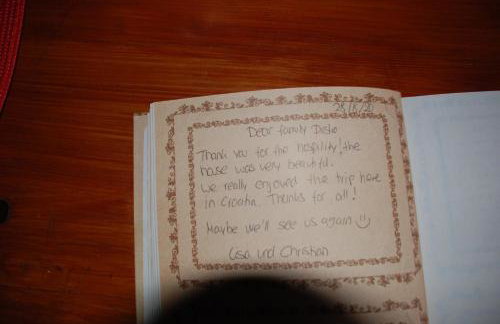 Dear family
Thank you for the hospility! the
house was very beautiful.
We really enjoyed the trip here
in Croatia. Thanks for all!
Maybe we'll see us again :)
Lisa und Christian